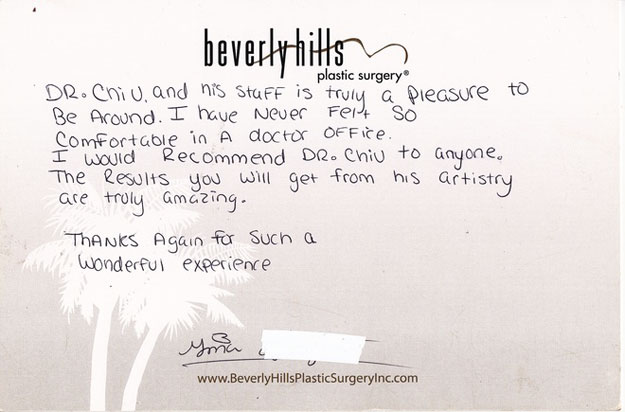 beverly hills
plastic surgery®
DR. Chiu, and his staff is truly a pleasure to
Be Around. I have Never Felt So
Comfortable in A doctor OFFice.
I would Recommend DR. Chiu to anyone.
The Results you will get from his artistry
are truly amazing.
THANKS Again for Such a
Wonderful experience
www.BeverlyHillsPlasticSurgeryInc.com